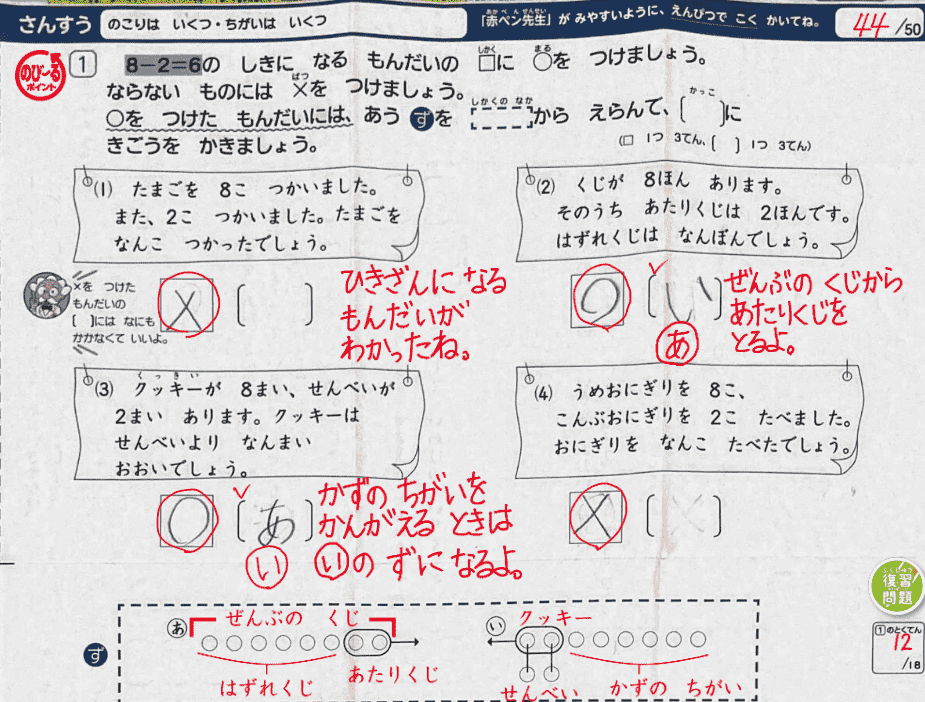 さんすう
のこりは いくつ・ちがいは いくつ
あかぺんせんせい
「赤ペン先生」が みやすいように、えんぴつで こく かいてね。
44/50
のび〜る
ポイント
1
8-2=6の しきに なる もんだいの □に ○を つけましょう。
しかく
まる
ならない ものには ×を つけましょう。
ばつ
○を つけた もんだいには、あう ずを しかくの なか から えらんで、〔 〕に
かっこ
きごうを かきましょう。
(□ 1つ 3てん、〔 〕 1つ 3てん)
(1) たまごを 8こ つかいました。
また、2こ つかいました。たまごを
なんこ つかったでしょう。
(2) くじが 8ほん あります。
そのうち あたりくじは 2ほんです。
はずれくじは なんぼんでしょう。
×を つけた
もんだいの
〔 〕には なにも
かかなくて いいよ。
×
〔 〕
ひきざんに なる
もんだいが
わかったね。
○
〔い〕
あ
ぜんぶの くじから
あたりくじを
とるよ。
(3) クッキーが 8まい、せんべいが
くっきい
2まい あります。クッキーは
せんべいより なんまい
おおいでしょう。
(4) うめおにぎりを 8こ、
こんぶおにぎりを 2こ たべました。
おにぎりを なんこ たべたでしょう。
○
〔あ〕
い
かずの ちがいを
かんがえる ときは
いの ずに なるよ。
×
〔 〕
ふくしゅう
復習
もんだい
問題
1のとくてん
12
/18
ず
あ
ぜんぶの くじ
はずれくじ
あたりくじ
い
クッキー
せんべい
かずの ちがい